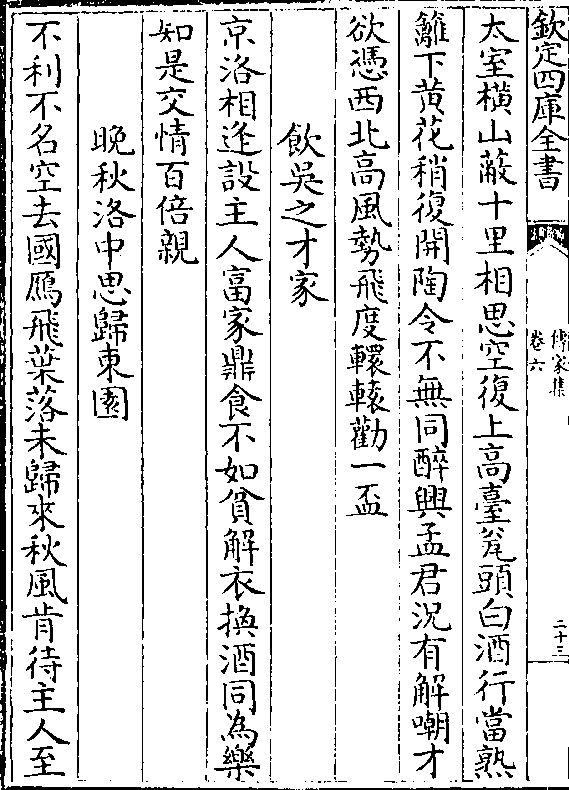 欽定四庫全書
傳家集
卷六
二十三
太室橫山蔽十里相思空復上高臺瓮頭白酒行當熟
籬下黄花稍復開陶令不無同醉興孟君況有解嘲才
欲憑西北高風勢飛度轘轅勸一盃
飲吳之才家
京洛相逢設主人富家鼎食不如貧解衣換酒同為樂
如是交情百倍親
晩秋洛中思歸東園
不利不名空去國鴈飛葉落未歸來秋風肯待主人至